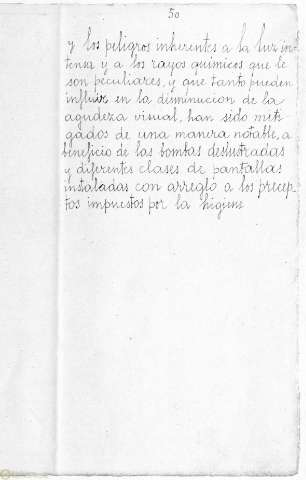 50
y los peligros inherentes a la luz in-
tensa y a los rayos químicos que le
son peculiares, y que tanto pueden
influir en la disminucion de la
agudeza visual, han sido miti-
gados de una manera notable, a
beneficio de las bombas deslustradas
y diferentes clases de pantallas
instaladas con arreglo a los precep-
tos impuestos por la higiene